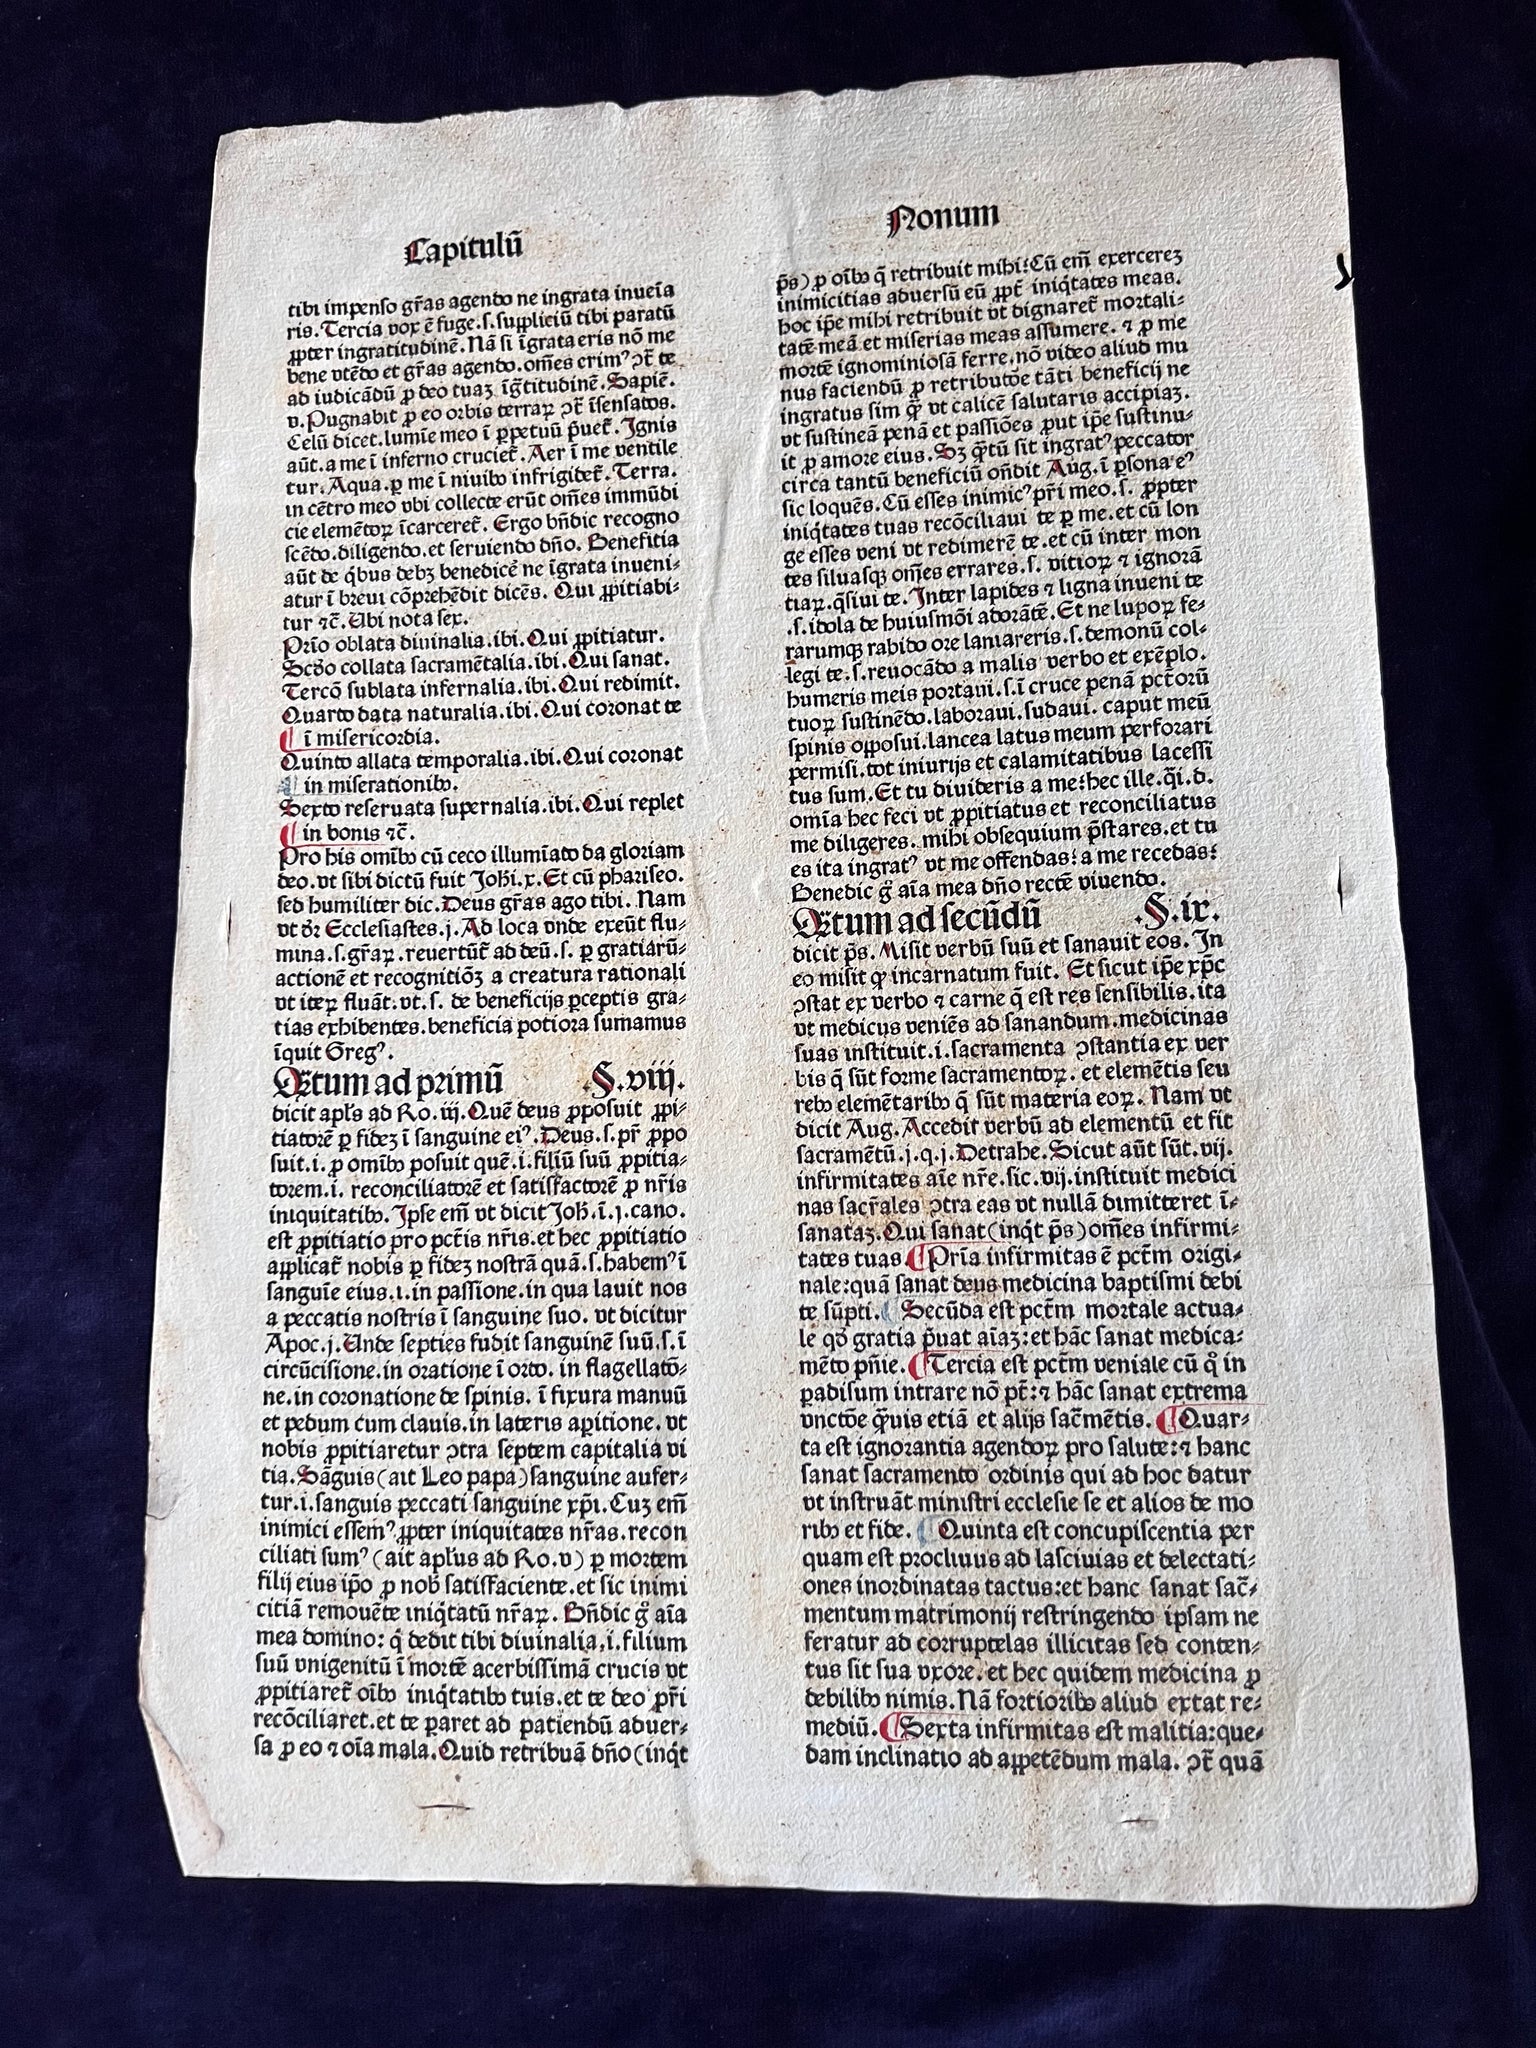 Capitulū
tibi impenso gr̄as agendo ne ingrata inueīa
ris. Tercia vox ē fuge. s. suppliciū tibi paratū
ꝓpter ingratitudinē. Nā si īgrata eris nō me
bene vtēdo et gr̄as agendo. om̄es crimꝰ ↄt̄ te
ad iudicādū ꝑ deo tuaꝫ īgr̄titudinē. Sapiē.
v. Pugnabit ꝑ eo orbis terraꝝ ↄt̄ īsensatos.
Celū dicet. lumīe meo ī ꝑpetuū p̄uet̄. Ignis
aūt. a me ī inferno cruciet̄. Aer ī me ventile
tur. Aqua. ꝑ me ī niuibꝰ infrigidet̄. Terra.
in cētro meo vbi collecte erūt om̄es immūdi
cie elemētoꝝ īcarceret̄. Ergo bn̄dic recogno
scēdo. diligendo. et seruiendo dn̄o. Beneficia
aūt de q̇bus debꝫ benedicē ne īgrata inueni⸗
atur ī breui cōprehēdit dicēs. Qui ꝓpitiabi⸗
tur ⁊c̄. Ubi nota sex.
Prīo oblata diuinalia. ibi. Qui ꝓpitiatur.
Scd̄o collata sacramētalia. ibi. Qui sanat.
Tercō sublata infernalia. ibi. Qui redimit.
Quarto data naturalia. ibi. Qui coronat te
¶ ī misericordia.
Quinto allata temporalia. ibi. Qui coronat
¶ in miserationibꝰ.
Sexto reseruata supernalia. ibi. Qui replet
¶ in bonis ⁊c̄.
Pro his omībꝰ cū ceco illumīato da gloriam
deo. vt sibi dictū fuit Joh̄i. x. Et cū phariseo.
sed humiliter dic. Deus gr̄as ago tibi. Nam
vt dr̄ Ecclesiastes. j. Ad loca vnde exeūt flu⸗
mina. s. gr̄aꝝ. reuertūt̄ ad deū. s. ꝑ gratiarū⸗
actionē et recognitiōꝫ a creatura rationali
vt iteꝝ fluāt. vt. s. de beneficijs ꝑceptis gra⸗
tias exhibentes. beneficia potiora sumamus
īquit Gregꝰ.
Quātum ad primū .§. viij.
dicit apl̄s ad Ro. iij. Quē deus ꝓposuit ꝓpi⸗
tiatorē ꝑ fideꝫ ī sanguine eiꝰ. Deus. s. pr̄ ꝓpo
suit. i. ꝓ omībꝰ posuit quē. i. filiū suū ꝓpitia⸗
torem. i. reconciliatorē et satisfactorē ꝓ nr̄is
iniquitatibꝰ. Ipse em̄ vt dicit Joh̄. ī. j. cano.
est ꝓpitiatio pro pctīs nr̄is. et hec ꝓpitiatio
applicat̄ nobis ꝑ fideꝫ nostrā quā. s. habemꝰ ī
sanguīe eius. i. in passione. in qua lauit nos
a peccatis nostris ī sanguine suo. vt dicitur
Apoc. j. Unde septies fudit sanguinē suū. s. ī
circūcisione. in oratione ī orto. in flagellatō⸗
ne. in coronatione de spinis. ī fixura manuū
et pedum cum clauis. in lateris aꝑitione. vt
nobis ꝓpitiaretur ↄtra septem capitalia vi
tia. Sāguis (ait Leo papa) sanguine aufer⸗
tur. i. sanguis peccati sanguine xp̄i. Cuꝫ em̄
inimici essemꝰ ꝓpter iniquitates nr̄as. recon
ciliati sumꝰ (ait apl̄us ad Ro. v) ꝑ mortem
filij eius ip̄o ꝓ nob̄ satisfaciente. et sic inimi
citiā remouēte iniq̇tatū nr̄aꝝ. Bn̄dic g̊ aīa
mea domino: q̇ dedit tibi diuinalia, i. filium
suū vnigenitū ī mortē acerbissimā crucis vt
ꝓpitiaret̄ oībꝰ iniq̇tatibꝰ tuis. et te deo pr̄i
recōciliaret. et te paret ad patiendū aduer⸗
sa ꝓ eo ⁊ oīa mala. Quid retribuā dn̄o (inq̇t
Nonum
p̄s) ꝓ oībꝰ q̄ retribuit mihi: Cū em̄ exercereꝫ
inimicitias aduersū eū ꝓpt̄ iniq̇tates meas.
hoc ip̄e mihi retribuit vt dignaret̄ mortali⸗
tatē meā et miserias meas assumere. ⁊ ꝓ me
mortē ignominiosā ferre, nō video aliud mu
nus faciendū ꝓ retributōe tāti beneficij ne
ingratus sim q̄ꝫ vt calicē salutaris accipiaꝫ.
vt sustineā penā et passiōes ꝓut ip̄e sustinu⸗
it ꝓ amore eius. Sꝫ q̄tū sit ingratꝰ peccator
circa tantū beneficiū on̄dit Aug. ī ꝑsona eꝰ
sic loquēs. Cū esses inimicꝰ pr̄i meo. s. ꝓpter
iniq̇tates tuas recōciliaui te ꝑ me. et cū lon
ge esses veni vt redimerē te. et cū inter mon
tes siluasqꝫ om̄es errares. s. vitioꝝ ⁊ ignorā
tiaꝝ. q̄siui te. Inter lapides ⁊ ligna inueni te
.s. idola de huiusmōi adorātē. Et ne lupoꝝ fe⸗
rarumqꝫ rabido ore laniareris. s. demonū col⸗
legi te. s. reuocādo a malis verbo et exēplo.
humeris meis portaui. s. ī cruce penā pctōrū
tuoꝝ sustinēdo. laboraui. sudaui. caput meū
spinis opposui. lancea latus meum perforari
permisi. tot iniurijs et calamitatibus lacessi
tus sum. Et tu diuideris a me: hec ille. q̄i. d.
omīa hec feci vt ꝓpitiatus et reconciliatus
me diligeres. mihi obsequium p̄stares. et tu
es ita ingratꝰ vt me offendas: a me recedas:
Benedic g̊ aīa mea dn̄o rectē viuendo.
Quātum ad secūdū .§. ix.
dicit p̄s. Misit verbū suū et sanauit eos. In
eo misit ꝙ incarnatum fuit. Et sicut ip̄e xp̄c
ↄstat ex verbo ⁊ carne q̄ est res sensibilis. ita
vt medicus veniēs ad sanandum. medicinas
suas instituit. i. sacramenta ↄstantia ex ver
bis q̄ sūt forme sacramentoꝝ. et elemētis seu
rebꝰ elemētaribꝰ q̄ sūt materia eoꝝ. Nam vt
dicit Aug. Accedit verbū ad elementū et fit
sacramētū. j. q. j. Detrahe. Sicut aūt sūt. vij.
infirmitates aīe nr̄e. sic. vij. instituit medici
nas sacr̄ales ↄtra eas vt nullā dimitteret ī⸗
sanataꝫ. Qui sanat (inq̇t p̄s) om̄es infirmi⸗
tates tuas. ¶ Prīa infirmitas ē pctm̄ origi⸗
nale: quā sanat deus medicina baptismi debi
te sūpti. ¶ Secūda est pctm̄ mortale actua⸗
le qd̄ gratia p̄uat aīaꝫ: et hāc sanat medica⸗
mēto pn̄ie. ¶ Tercia est pctm̄ veniale cū q̊ in
padisum intrare nō pt̄: ⁊ hāc sanat extrema
vnctōe q̄uis etiā et alijs sac̄mētis. ¶ Quar⸗
ta est ignorantia agendoꝝ pro salute: ⁊ hanc
sanat sacramento ordinis qui ad hoc datur
vt instruāt ministri ecclesie se et alios de mo
ribꝰ et fide. ¶ Quinta est concupiscentia per
quam est procliuus ad lasciuias et delectati⸗
ones inordinatas tactus: et hanc sanat sac̄⸗
mentum matrimonij restringendo ipsam ne
feratur ad corruptelas illicitas sed conten⸗
tus sit sua vxore. et hec quidem medicina ꝓ
debilibꝰ nimis. Nā fortioribꝰ aliud extat re⸗
mediū. ¶ Sexta infirmitas est malitia: que⸗
dam inclinatio ad appetēdum mala. ↄt̄ quā